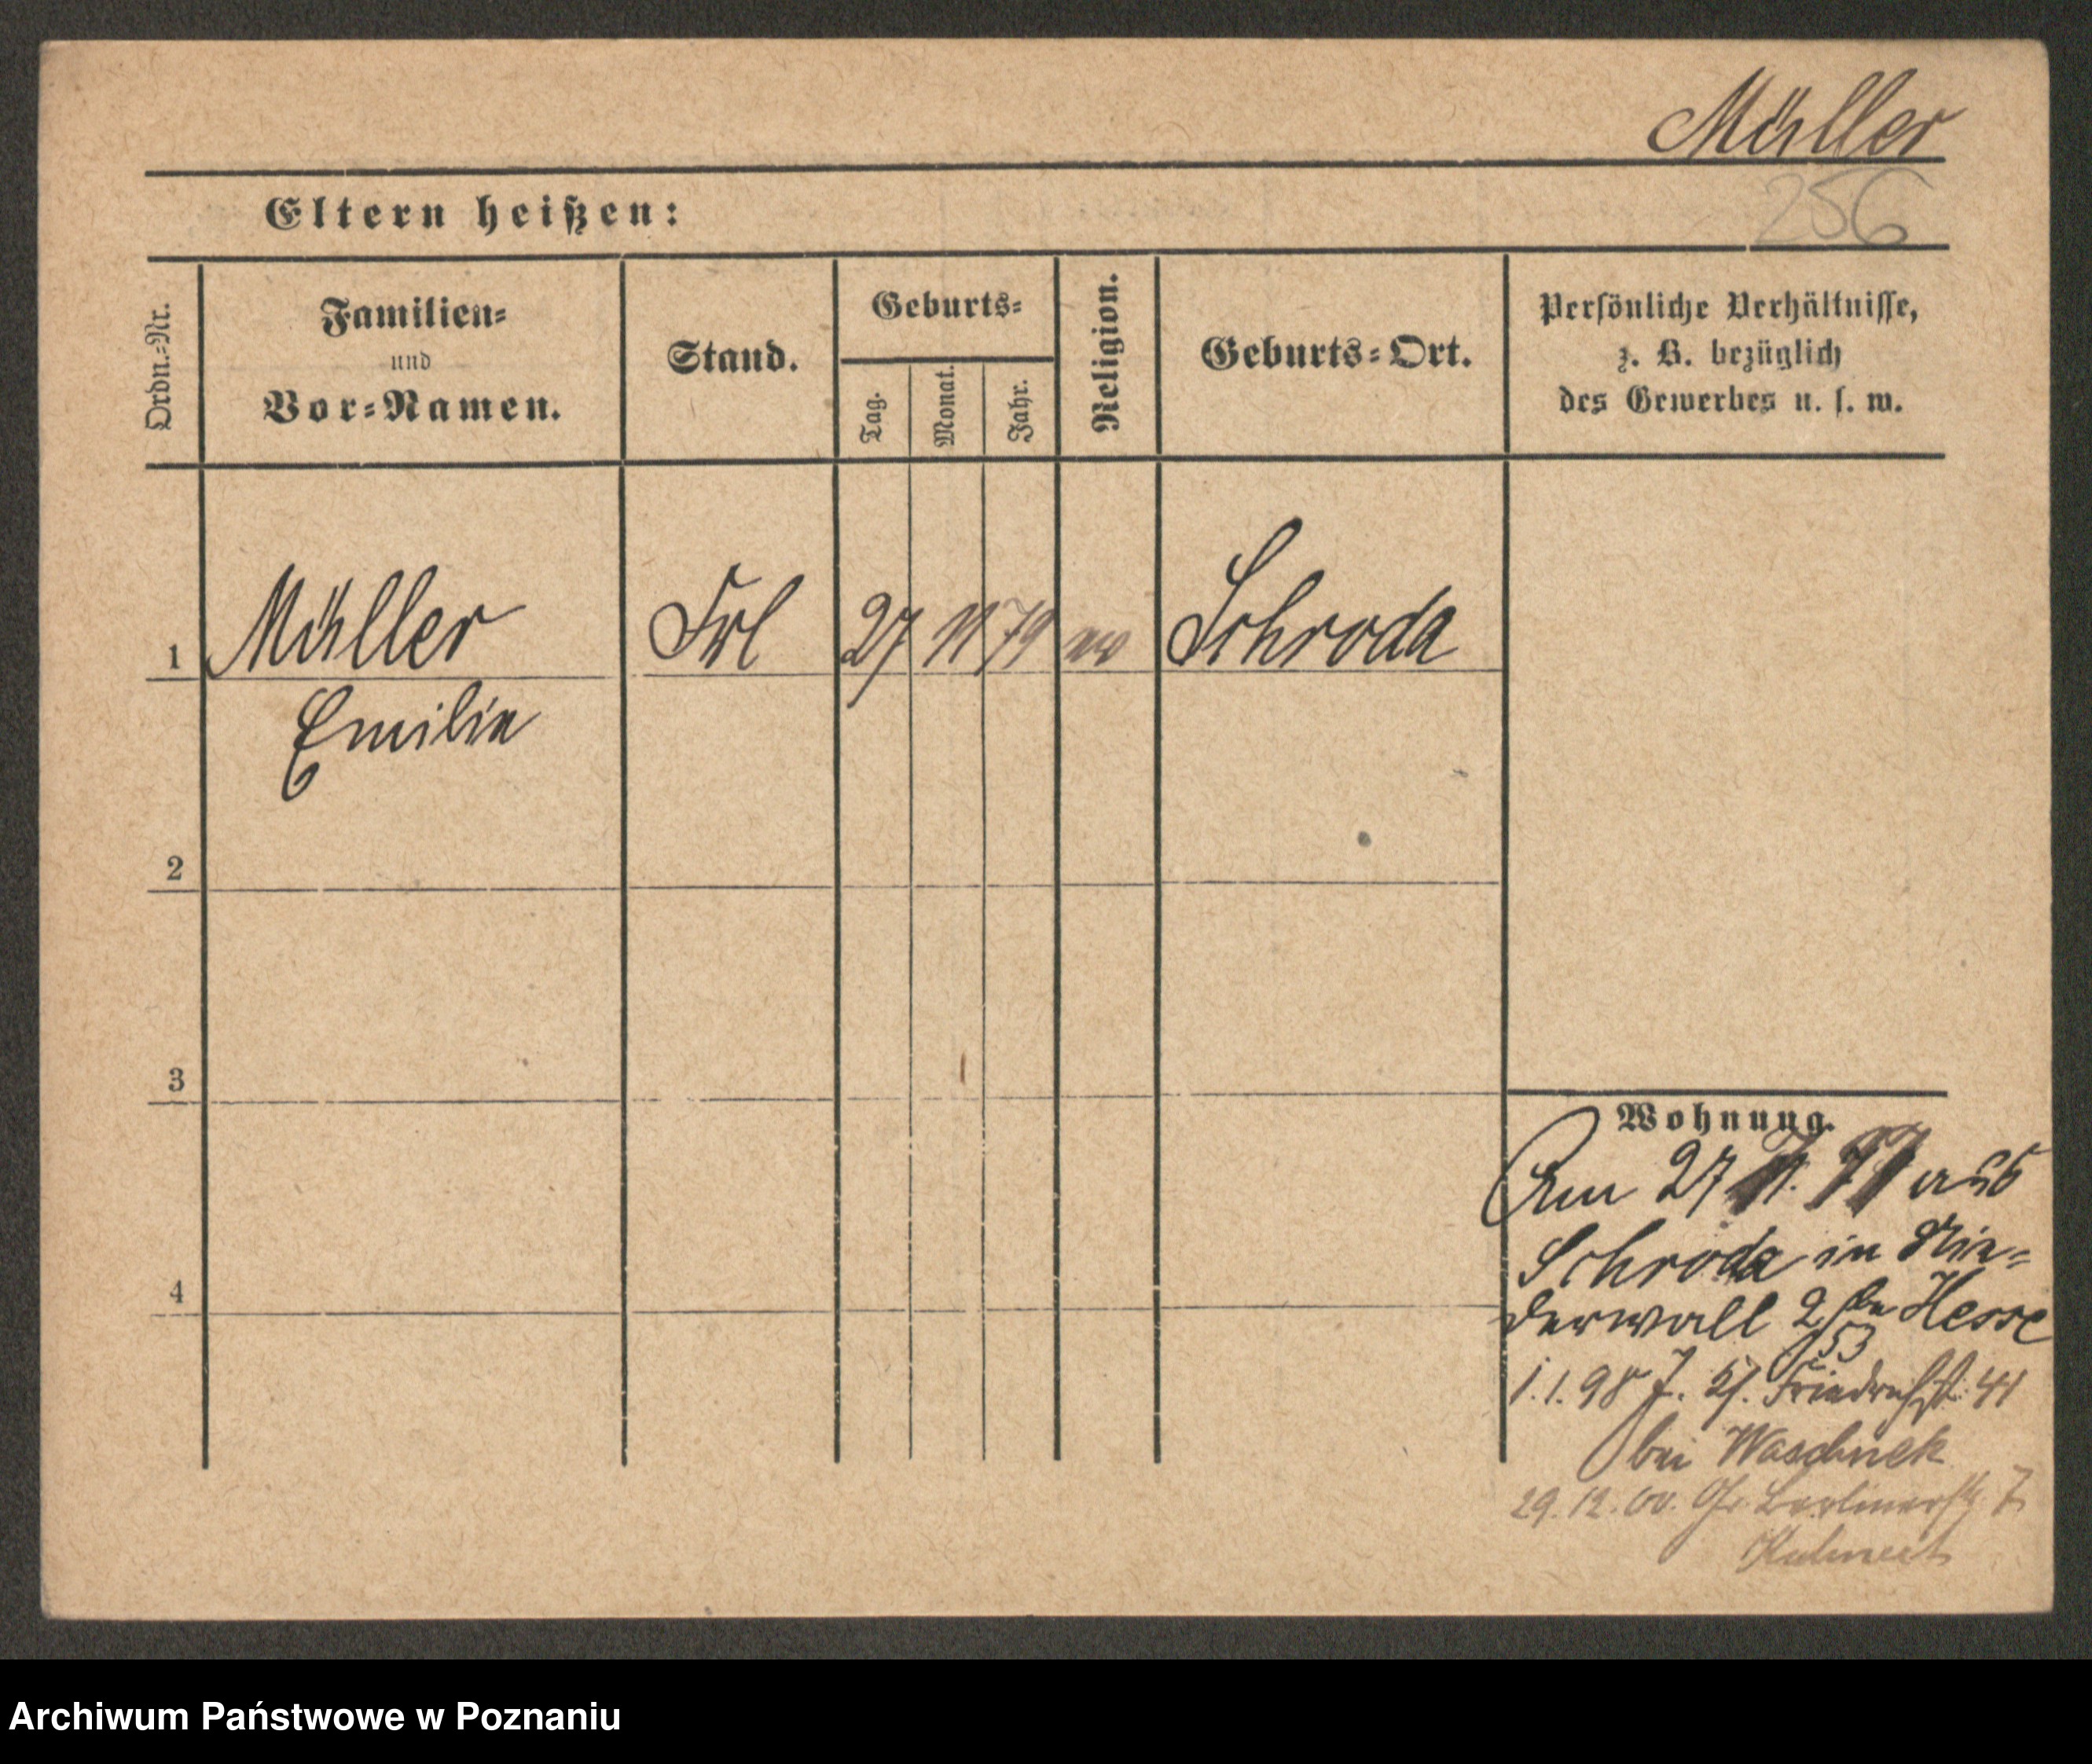 Müller
256
Eltern heißen:
Ordn.=Nr.
Familien=
und
Vor=Namen.
Stand.
Geburts=
Tag.
Monat.
Jahr.
Religion.
Geburts=Ort.
Persönliche Verhältnisse,
z. B. bezüglich
des Gewerbes u. s. w.
1
Müller
Frl
27
11
79
Schroda
Emilie
2
3
4
Wohnung.
Am 27 aus
Schroda in Nie=
derwall 2 Hesse
53
1.1.98 Friedrichst. 41
bei Waschnek
29.12.00. Gr. Berlinerstr. 7
Archiwum Państwowe w Poznaniu